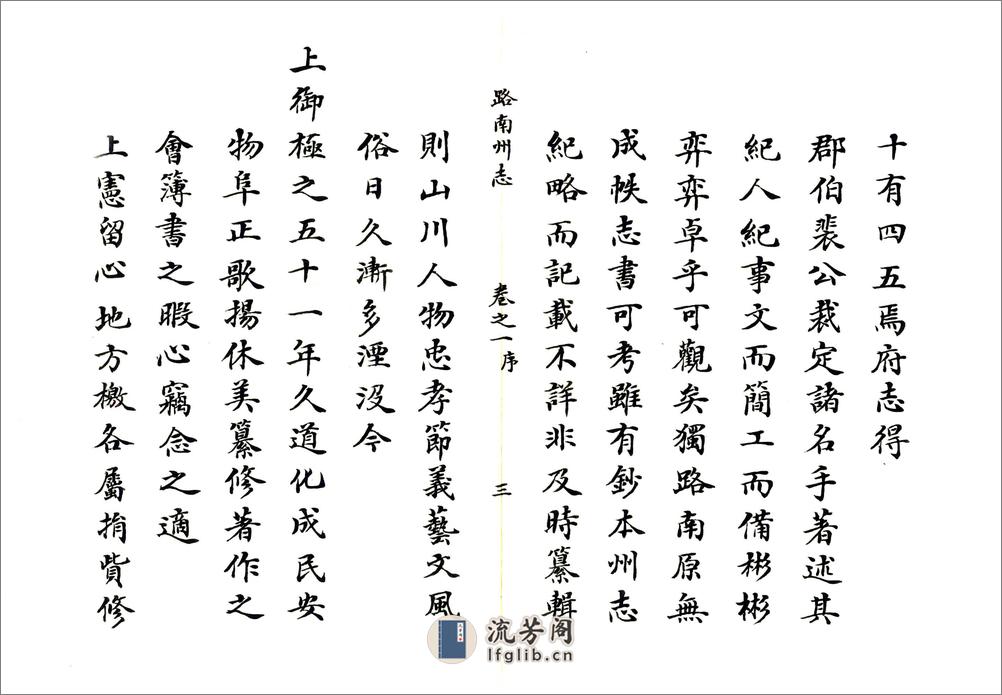 十有四五焉府志得
郡伯裴公裁定諸名手著述其
紀人紀事文而簡工而備彬彬
弈弈卓乎可觀矣獨路南原無
成帙志書可考雖有鈔本州志
紀略而記載不詳非及時纂輯
路南州志 卷之一序 三
則山川人物忠孝節義藝文風
俗日久漸多湮没今
上御極之五十一年久道化成民安
物阜正歌揚休美纂修著作之
會簿書之暇心竊念之適
上憲留心地方檄各屬捐貲修
流芳阁
lfglib.cn